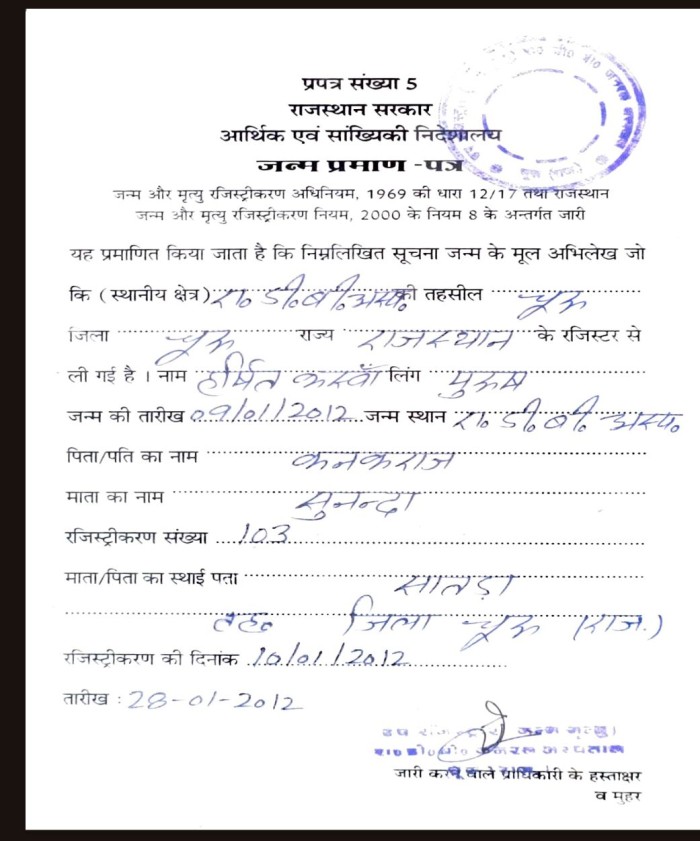 प्रपत्र संख्या 5
राजस्थान सरकार
आर्थिक एवं सांख्यिकी निदेशालय
जन्म प्रमाण -पत्र
जन्म और मृत्यु रजिस्ट्रीकरण अधिनियम, 1969 की धारा 12/17 तथा राजस्थान
जन्म और मृत्यु रजिस्ट्रीकरण नियम, 2000 के नियम 8 के अन्तर्गत जारी
यह प्रमाणित किया जाता है कि निम्नलिखित सूचना जन्म के मूल अभिलेख जो
कि (स्थानीय क्षेत्र) रा. डी. बी. अस्प. की तहसील चूरू
जिला चूरू राज्य राजस्थान के रजिस्टर से
ली गई है । नाम हर्षित कस्वाँ लिंग पुरूष
जन्म की तारीख 09/01/2012 जन्म स्थान रा. डी. बी. अस्प.
पिता/पति का नाम कनकराज
माता का नाम सुनन्दा
रजिस्ट्रीकरण संख्या 103
माता/पिता का स्थाई पता सातड़ा
तह. जिला चूरू (राज.)
रजिस्ट्रीकरण की दिनांक 10/01/2012
तारीख : 28-01-2012
उप जन्म मृत्यु)
जनरल अस्पताल
जारी करने वाले प्राधिकारी के हस्ताक्षर
व मुहर